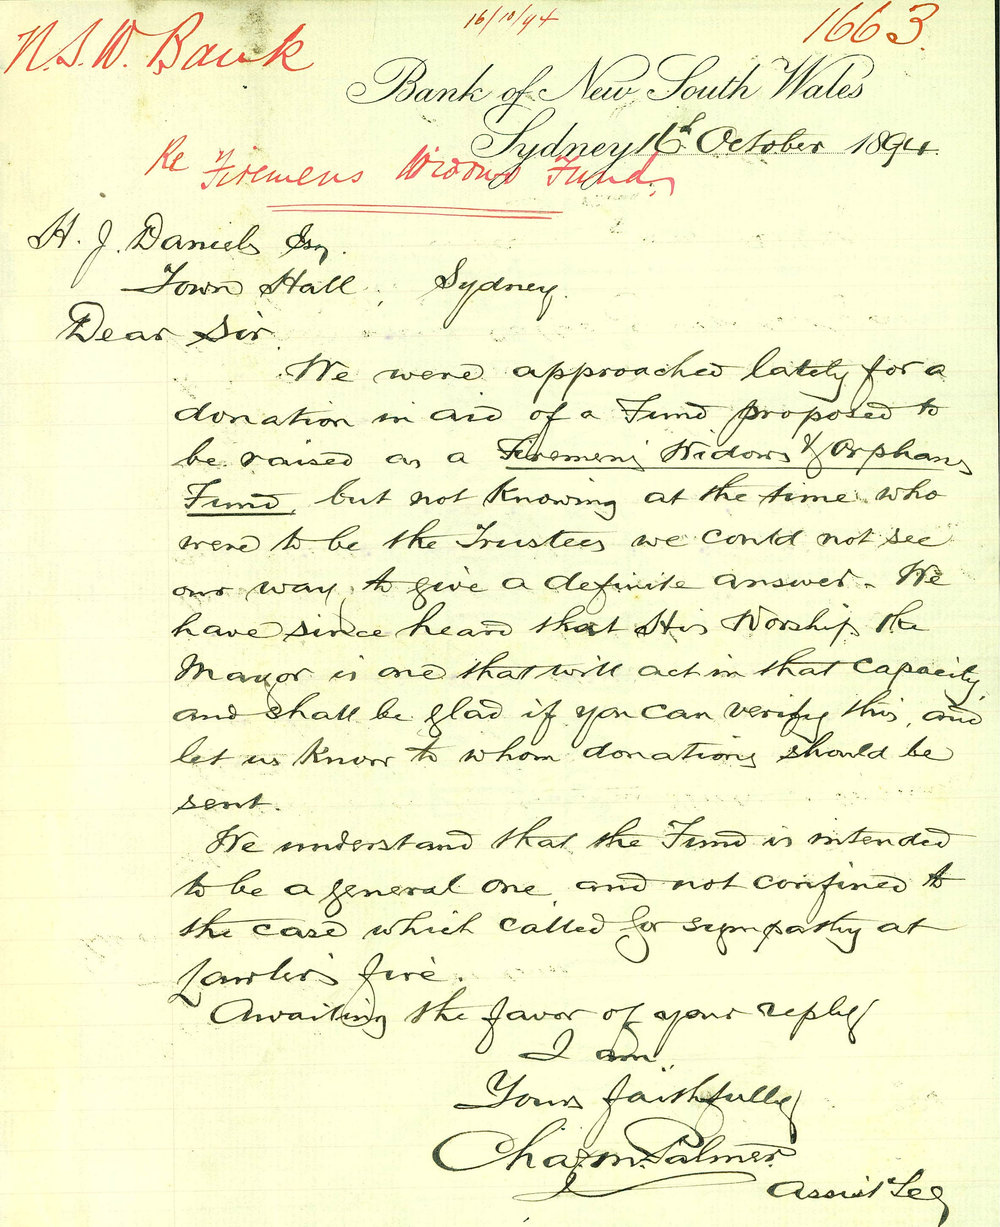 16/10/94
1663.
N.S.W. Bank
Bank of New South Wales
Sydney 16th October 1894.
Re Firemens Widows Fund,
H. J. Daniels Esq.
Town Hall, Sydney.
Dear Sir
We were approached lately for a
donation in aid of a Fund proposed to
be raised as a Firemen's Widows & Orphans
Fund, but not knowing at the time who
were to be the Trustees we could not see
our way to give a definite answer. We
have since heard that His Worship the
Mayor is one that will act in that capacity,
and shall be glad if you can verify this, and
let us know to whom donations should be
sent.
We understand that the Fund is intended
to be a general one and not confined to
the case which called for sympathy at
Lawler's fire.
Awaiting the favor of your reply
I am,
Yours faithfully
Chas. M. Palmer.
Assist Sec